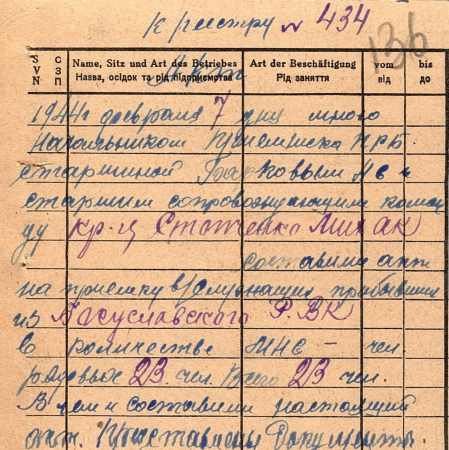 к реестру № 434
136
SVN СЗП Name, Sitz und Art des Betriebes Art der Beschäftigung vom bis
Назва, осідок та рід підприємства Рід заняття від до
Акт
1944 г февраля 7 дня мною
Начальником ПРБ
старшиной Барковым и
старшим сопровождающим коман
ду кр-ц Стаценко
составили акт
на приемку в/служащих прибывших
из Богуславского РВК
в количестве МНС – чел.
рядовых 23 чел. Всего 23 чел.
В чем и составили настоящий
акт. документы.